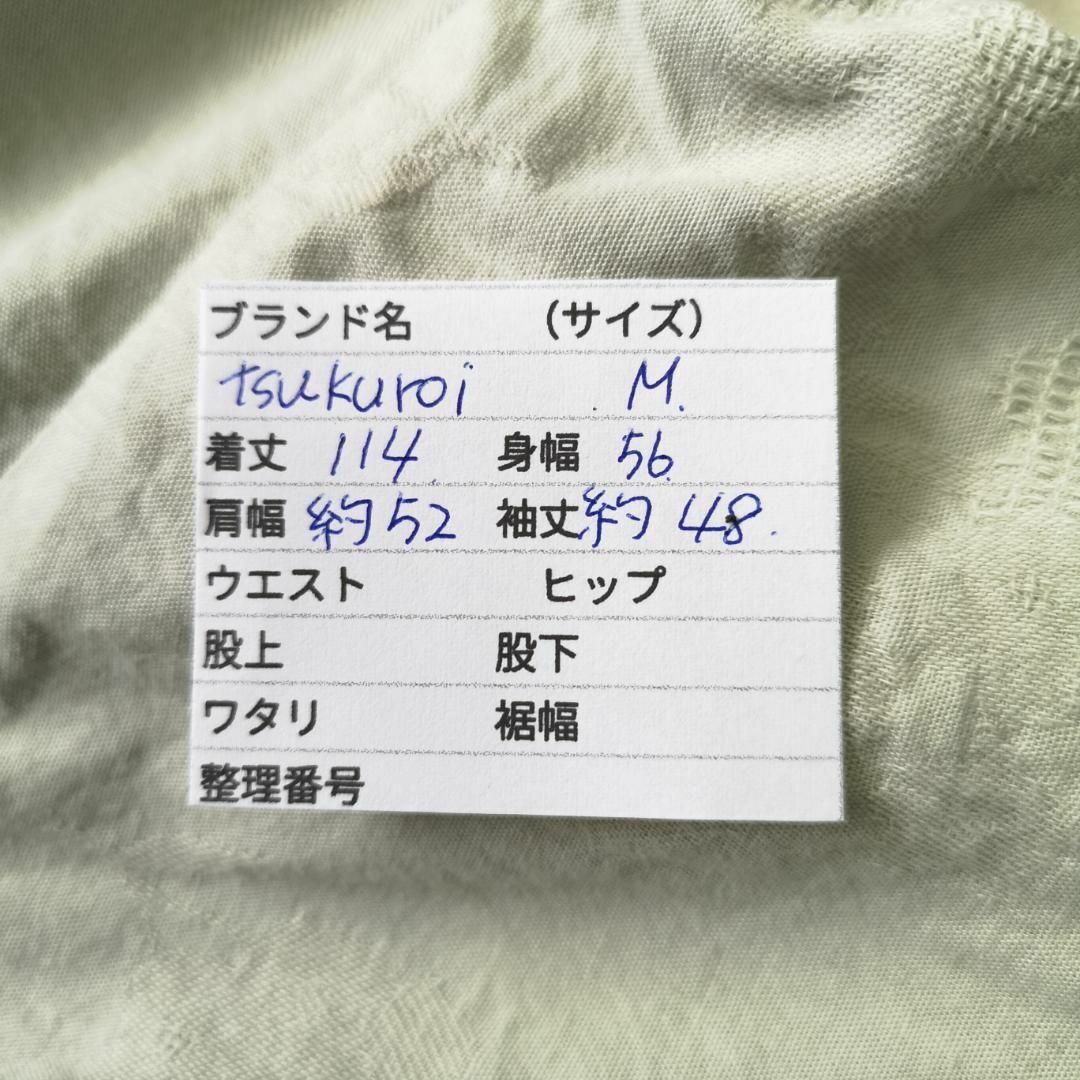 ブランド名 (サイズ)
tsukuroi M.
着丈 114. 身幅 56.
肩幅 約52 袖丈 約48.
ウエスト ヒップ
股上 股下
ワタリ 裾幅
整理番号